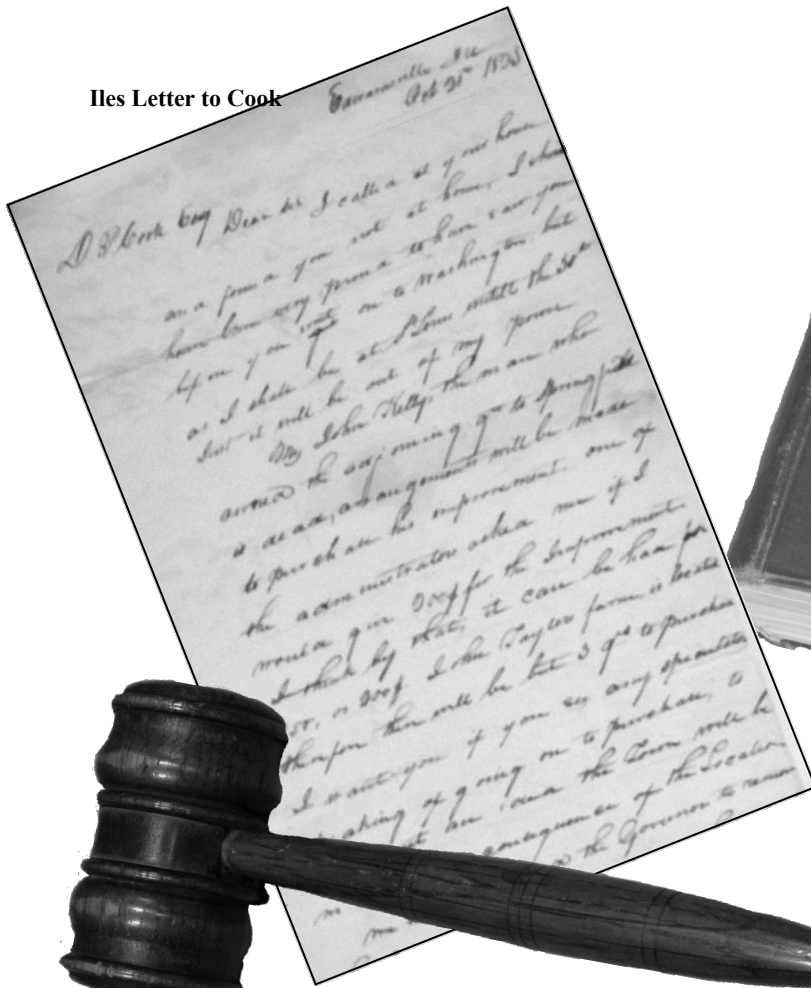 Iles Letter to Cook
Edwardsville Ill
Oct 21st 1823
D P Cook Esq Dear Sir I called at your house
and found you not at home, I should
have been very proud to have saw you
before you went on to Washington but
as I shall be at St Louis untill the 30th
Inst it will be out of my power
Mr John Kelly, the man who
owned the adjoining qr to Springfield
is dead, arrangements will be made
to purchase his improvement. one of
the administrators asked me if I
would give 300$ for the Improvement.
I think by that, it can be had for
or 200$. John Taylors farm is located
therefore there will be but 3 qrs to purchase
I want you if you see any speculators
of going on to purchase, to
the Town will be
consequence of the Location
the Governor to